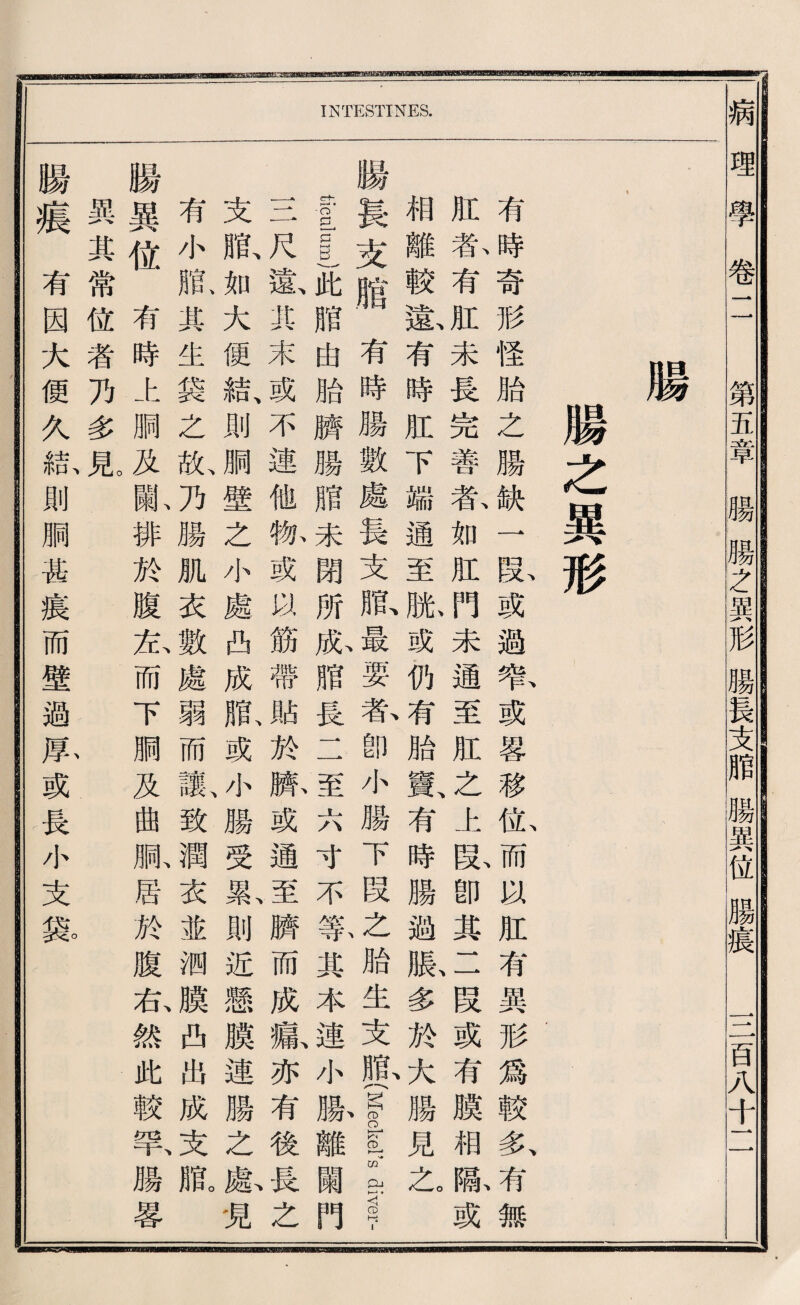 INTESTINES.
病理學 卷二 第五章 腸 腸之異形 腸長支脏 腸異位 腸痕 三百八十二
腸
腸之異形
有時奇形怪胎之腸缺一段、或過窄、或畧移位、而以肛有異形爲較多、有無
肛者、有肛未長完善者、如肛門未通至肛之上段、卽其二段或有膜相隔、或
相離較遠、有時肛下端通至胱、或仍有胎竇、有時腸過脹、多於大腸見之。
腸長支脏 有時腸數處長支脏、最要者、卽小腸下段之胎生支脏、(Meckel's diver-
ticulum)此脏由胎臍腸脏未閉所成、脏長二至六寸不等、其本連小腸、離闌門
三尺遠、其末或不連他物、或以筋帶貼於臍、或通至臍而成痛、亦有後長之
支脏、如大便結、則胴壁之小處凸成脏、或小腸受累、則近懸膜連腸之處、見
有小脏、其生袋之故、乃腸肌衣數處弱而讓、致潤衣並泗膜凸出成支脏。
腸異位 有時上胴及闌、排於腹左、而下胴及曲胴、居於腹右、然此較罕、腸畧
異其常位者乃多見。
腸痕 有因大便久結、則胴甚痕而壁過厚、或長小支袋。